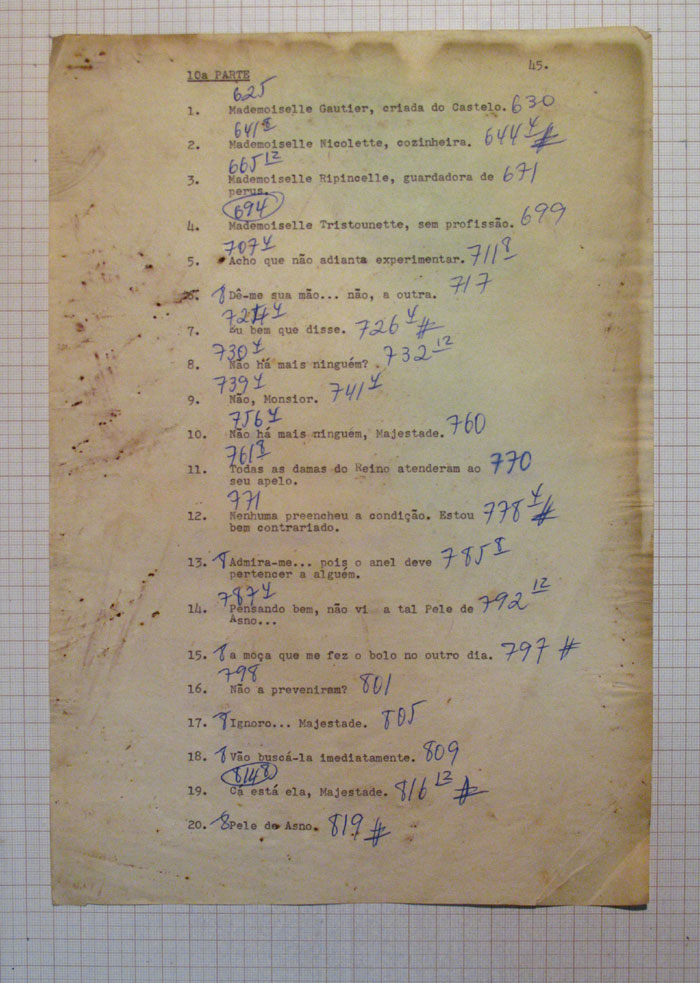 45.
10a PARTE
625
1. Mademoiselle Gautier, criada do Castelo. 630
641 8
2. Mademoiselle Nicolette, cozinheira. 644 4 #
665 12
3. Mademoiselle Ripincelle, guardadora de 671
perus.
694
4. Mademoiselle Tristounette, sem profissão. 699
707 4
5. Acho que não adianta experimentar. 711 8
6. 8 Dê-me sua mão... não, a outra. 717
724 4
7. Eu bem que disse. 726 4 #
730 4
8. Não há mais ninguém? 732 12
739 4
9. Não, Monsior. 741 4
756 4
10. Não há mais ninguém, Majestade. 760
761 8
11. Todas as damas do Reino atenderam ao 770
seu apelo.
771
12. Nenhuma preencheu a condição. Estou 778 4 #
bem contrariado.
13. 8 Admira-me... pois o anel deve 785 8
pertencer a alguém.
787 4
14. Pensando bem, não vi a tal Pele de 792 12
Asno...
15. 8 a môça que me fez o bolo no outro dia. 797 #
798
16. Não a preveniram? 801
17. 8 Ignoro... Majestade. 805
18. 8 Vão buscá-la imediatamente. 809
814 8
19. Cá está ela, Majestade. 816 12 #
20. 8 Pele de Asno. 819 #